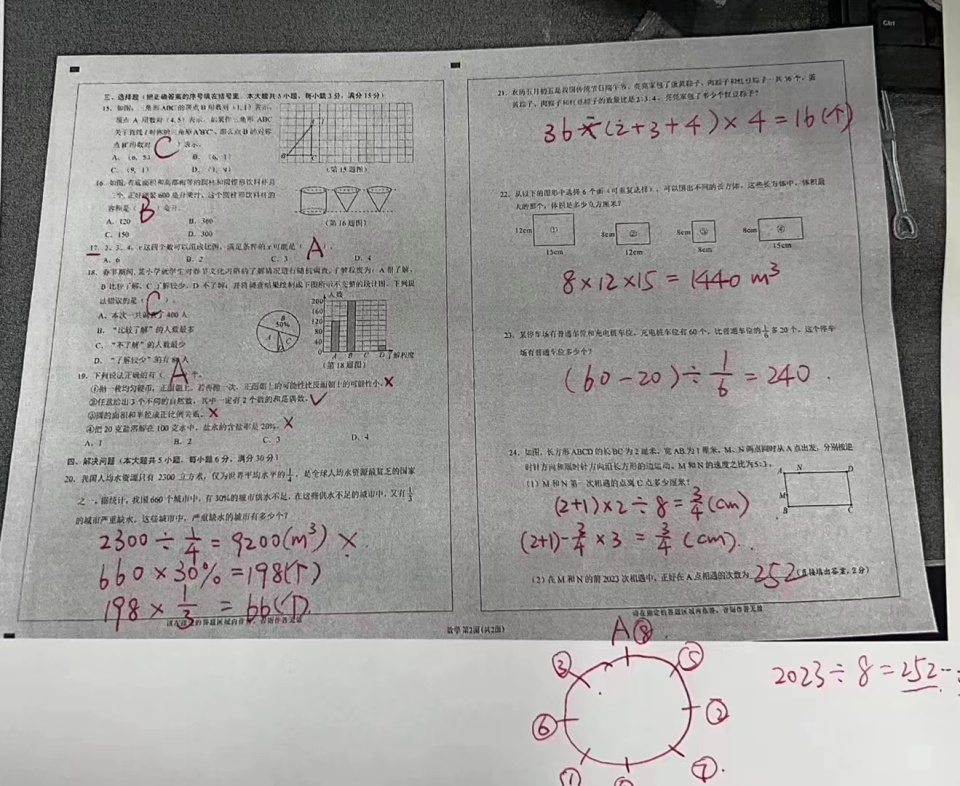 三、选择题（把正确答案的序号填在括号里，本大题共5小题，每小题3分，满分15分）
15. 如图，三角形ABC的顶点B用数对（1,1）表示，
顶点A用数对（4,5）表示，
关于直线l对称的三角形A'B'C'，那么点B的对称
点
C
）表示。
A.（6, 5）
B.（6, 1）
C.（9, 1）
D.（1, 9）
（第15题图）
16. 如图，有底面积和高都相等的圆柱和圆锥形饮料杯共
三个，正好能装600毫升果汁，这个圆柱形饮料杯的
容积是（
B
）毫升。
A. 120
B. 360
C. 150
D. 300
（第16题图）
17. 2、3、4、x这四个数可以组成比例，满足条件的x可能是（
A
）。
A. 6
B. 2
C. 3
D. 4
18. 春节期间，某小学就学生对春节文化习俗的了解情况进行随机调查，了解程度为：A很了解，
B比较了解，C了解较少，D不了解，并将调查结果绘制成下图所示不完整的统计图，下列说
法错误的是（
C
）。
A. 本次一共调查了400人
B. “比较了解”的人数最多
C. “不了解”的人数最少
D. “了解较少”的有80人
B
50%
A
C
人数
200
160
120
80
40
0
A B C D 了解程度
（第18题图）
19. 下列说法正确的有（
A
）个。
①抛一枚均匀硬币，正面朝上，若再抛一次，正面朝上的可能性比反面朝上的可能性小。×
②任意给出3个不同的自然数，其中一定有2个数的和是偶数。✓
③圆的面积和半径成正比例关系。×
④把20克盐溶解在100克水中，盐水的含盐率是20%。×
A. 1
B. 2
C. 3
D. 4
四、解决问题（本大题共5小题，每小题6分，满分30分）
20. 我国人均水资源只有2300立方米，仅为世界平均水平的1/4，是全球人均水资源最贫乏的国家
之一。据统计，我国660个城市中，有30%的城市供水不足，在这些供水不足的城市中，又有1/3
的城市严重缺水，这些城市中，严重缺水的城市有多少个？
2300÷1/4=9200(m³) ×
660×30%=198(个)
198×1/3=66(个)
数学 第2面(共2面)
21. 农历五月初五是我国传统节日端午节，
粽子、肉粽子和红豆粽子一共36个，蛋
黄粽子、肉粽子和红豆粽子的数量比是2:3:4，
家包了多少个红豆粽子？
36÷(2+3+4)×4=16(个)
22. 从以下的图形中选择6个面（可重复选择），可以围出不同的长方体，这些长方体中，体积最
大的那个，体积是多少立方厘米？
12cm ① 15cm
8cm ② 12cm
8cm ③ 8cm
8cm ④ 15cm
8×12×15=1440 m³
23. 某停车场有普通车位和充电桩车位，充电桩车位有60个，比普通车位的1/6多20个，这个停车
场有普通车位多少个？
(60-20)÷1/6=240
24. 如图，长方形ABCD的长BC为2厘米，宽AB为1厘米，M、N两点同时从A点出发，分别按逆
时针方向和顺时针方向沿长方形的边运动，M和N的速度之比为5:3，
（1）M和N第一次相遇的点离C点多少厘米？
A N D
M
B C
(2+1)×2÷8=3/4(cm)
(2+1)-3/4×3=3/4(cm)
（2）在M和N的前2023次相遇中，正好在A点相遇的次数为
252
（直接填出答案，2分）
请在指定的答题区域内作答，否则作答无效
A⑧
③
⑤
⑥
②
①
⑦
2023÷8=252…